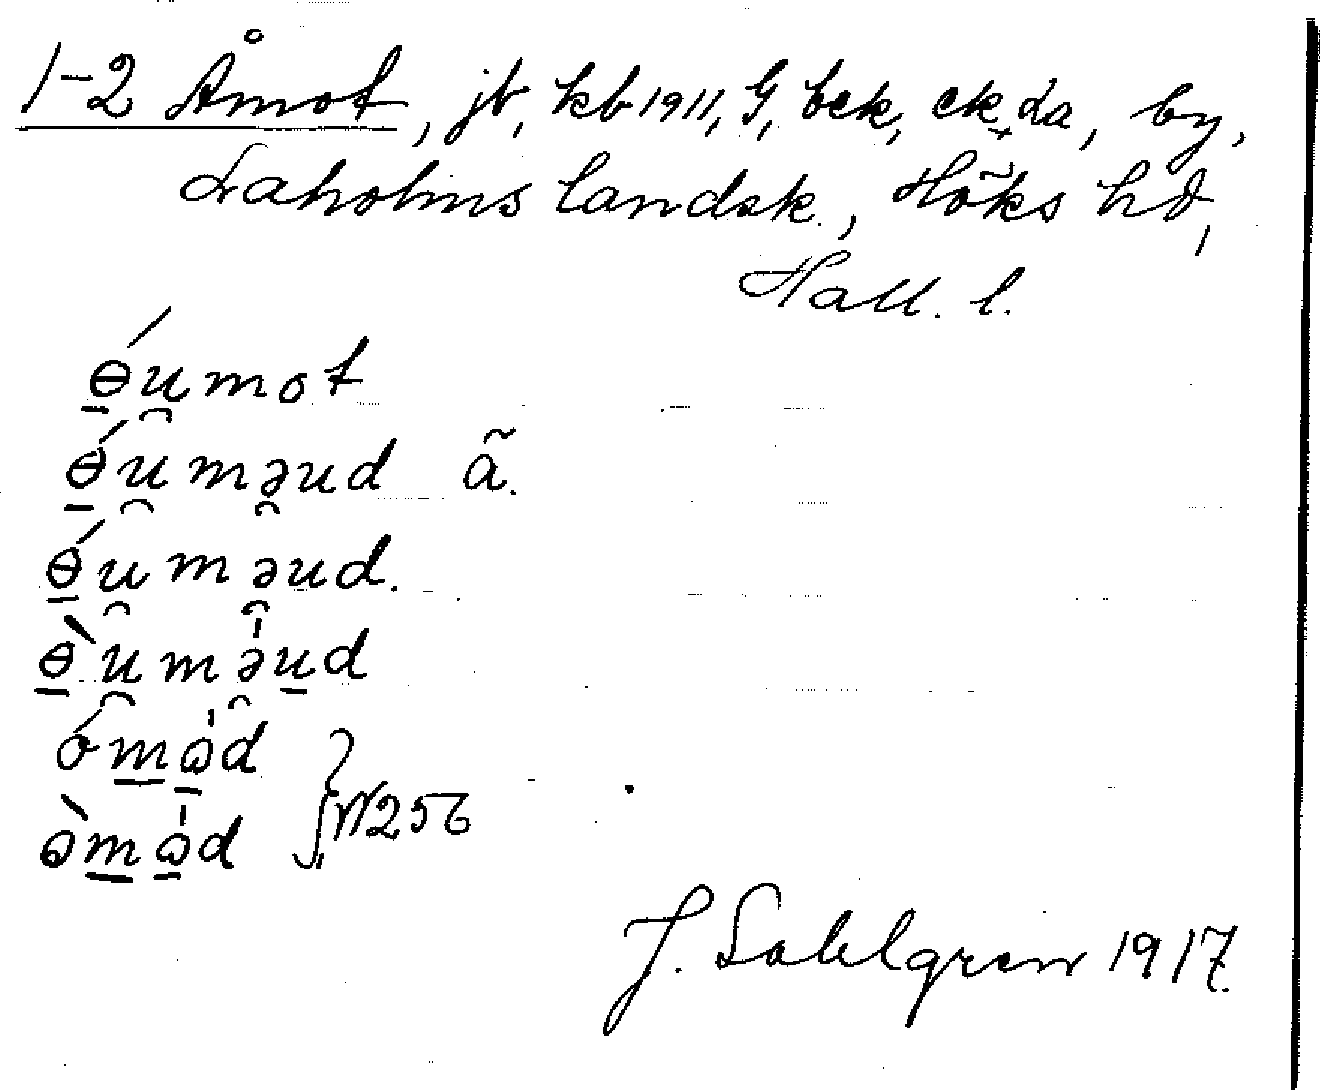 1-2 Åmot, jb, kb 1911, G, bek, ek, da, by,
Laholms landsk., Höks hd,
Hall. l.
ɵ́u̯mot
ɵ́u̯mə̯ud ã.
ɵ́u̯mə̯ud.
ɵ̀u̯mə̯ud
óməd
əməd } W256
J. Sahlgren 1917.